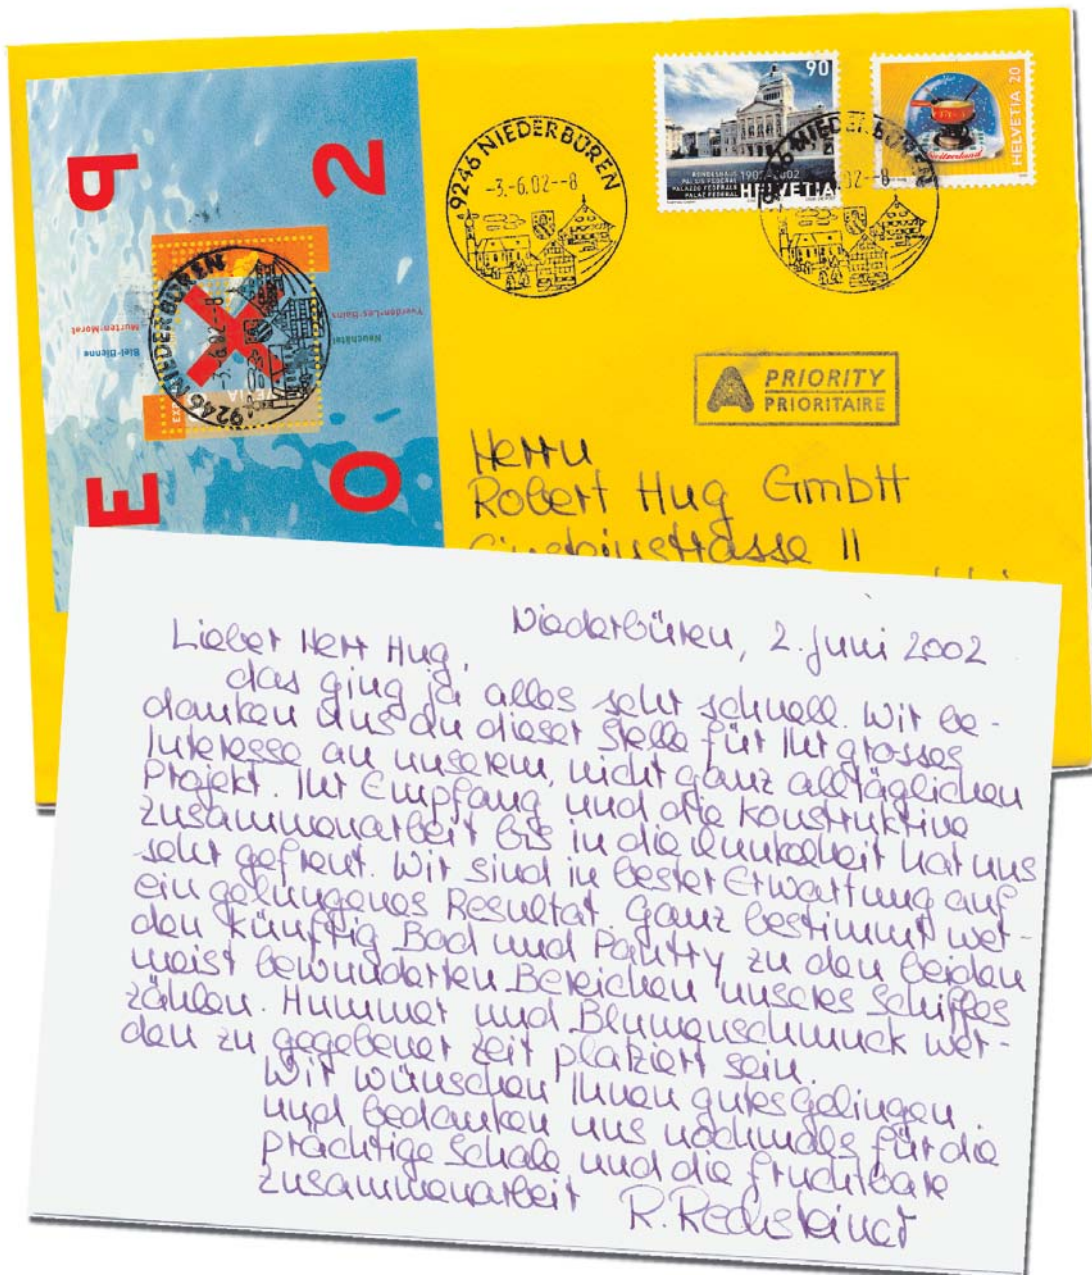 P 2
E O
Yverdon-Les-Bains
Murten-Morat
Neuchâtel
Biel-Bienne
9246 NIEDERBÜREN
-3.-6.02--8
EXP
9246 NIEDERBÜREN
-3.-6.02--8
90
BUNDESHAUS
PALAIS FÉDÉRAL 1902-2002
PALAZZO FEDERALE
PALAZ FEDERAL HELVETIA
HELVETIA 20
Switzerland
9246 NIEDERBÜREN
02--8
A PRIORITY
PRIORITAIRE
Herrn
Robert Hug GmbH
strasse 11
Niederbüren, 2. Juni 2002
Lieber Herr Hug,
das ging ja alles sehr schnell. Wir be-
danken uns an dieser Stelle für Ihr grosses
Interesse an unserem, nicht ganz alltäglichen
Projekt. Ihr Empfang und die konstruktive
Zusammenarbeit bis in die Dunkelheit hat uns
sehr gefreut. Wir sind in bester Erwartung auf
ein gelungenes Resultat. Ganz bestimmt wer-
den künftig Bad und Pantry zu den beiden
meist bewunderten Bereichen unseres Schiffes
zählen. Hummer und Blumenschmuck wer-
den zu gegebener Zeit platziert sein.
Wir wünschen Ihnen gutes Gelingen
und bedanken uns nochmals für die
prächtige Schale und die fruchtbare
Zusammenarbeit R. Rechsteiner